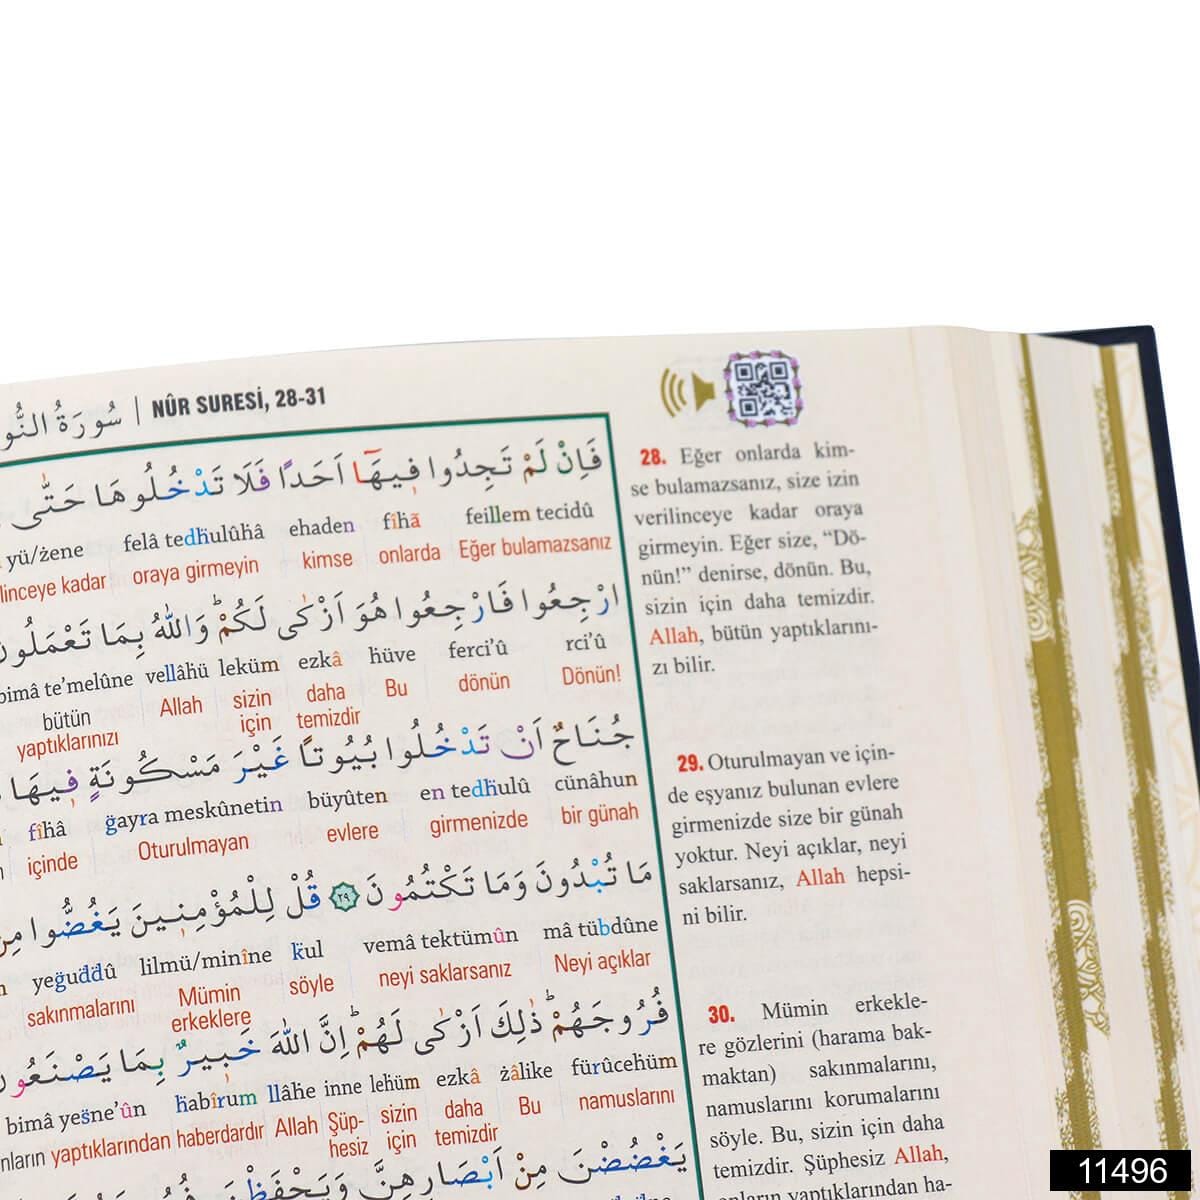 NÛR SURESİ, 28-31
سُورَةُ
فَاِنْ لَمْ تَجِدُوا فٖيهَٓا اَحَدًا فَلَا تَدْخُلُوهَا حَتّٰى
feillem tecidû fîhâ ehaden felâ tedhulûhâ yü/żene
Eğer bulamazsanız onlarda kimse oraya girmeyin linceye kadar
ارْجِعُوا فَارْجِعُوا هُوَ اَزْكٰى لَكُمْ وَاللّٰهُ بِمَا تَعْمَلُونَ
rci'û ferci'û hüve ezkâ leküm vellâhü bimâ te'melûne
Dönün! dönün Bu daha temizdir sizin için Allah bütün yaptıklarınızı
جُنَاحٌ اَنْ تَدْخُلُوا بُيُوتًا غَيْرَ مَسْكُونَةٍ فٖيهَا
cünâhun en tedhulû büyûten ğayra meskûnetin fîhâ
bir günah girmenizde evlere Oturulmayan içinde
مَا تُبْدُونَ وَمَا تَكْتُمُونَ ٢٩ قُلْ لِلْمُؤْمِنٖينَ يَغُضُّوا مِنْ
mâ tübdûne vemâ tektümûn kul lilmü/minîne yeğuddû
Neyi açıklar neyi saklarsanız söyle Mümin erkeklere sakınmalarını
فُرُوجَهُمْ ذٰلِكَ اَزْكٰى لَهُمْ اِنَّ اللّٰهَ خَبٖيرٌ بِمَا يَصْنَعُونَ
fürûcehüm żâlike ezkâ lehüm inne llâhe habîrum bimâ yesne'ûn
namuslarını Bu daha temizdir sizin için Şüp-hesiz Allah haberdardır yaptıklarından nların
يَغْضُضْنَ مِنْ اَبْصَارِهِنَّ وَيَحْفَظْنَ
28. Eğer onlarda kim-
se bulamazsanız, size izin
verilinceye kadar oraya
girmeyin. Eğer size, “Dö-
nün!” denirse, dönün. Bu,
sizin için daha temizdir.
Allah, bütün yaptıklarını-
zı bilir.
29. Oturulmayan ve için-
de eşyanız bulunan evlere
girmenizde size bir günah
yoktur. Neyi açıklar, neyi
saklarsanız, Allah hepsi-
ni bilir.
30. Mümin erkekle-
re gözlerini (harama bak-
maktan) sakınmalarını,
namuslarını korumalarını
söyle. Bu, sizin için daha
temizdir. Şüphesiz Allah,
onların yaptıklarından ha-
11496